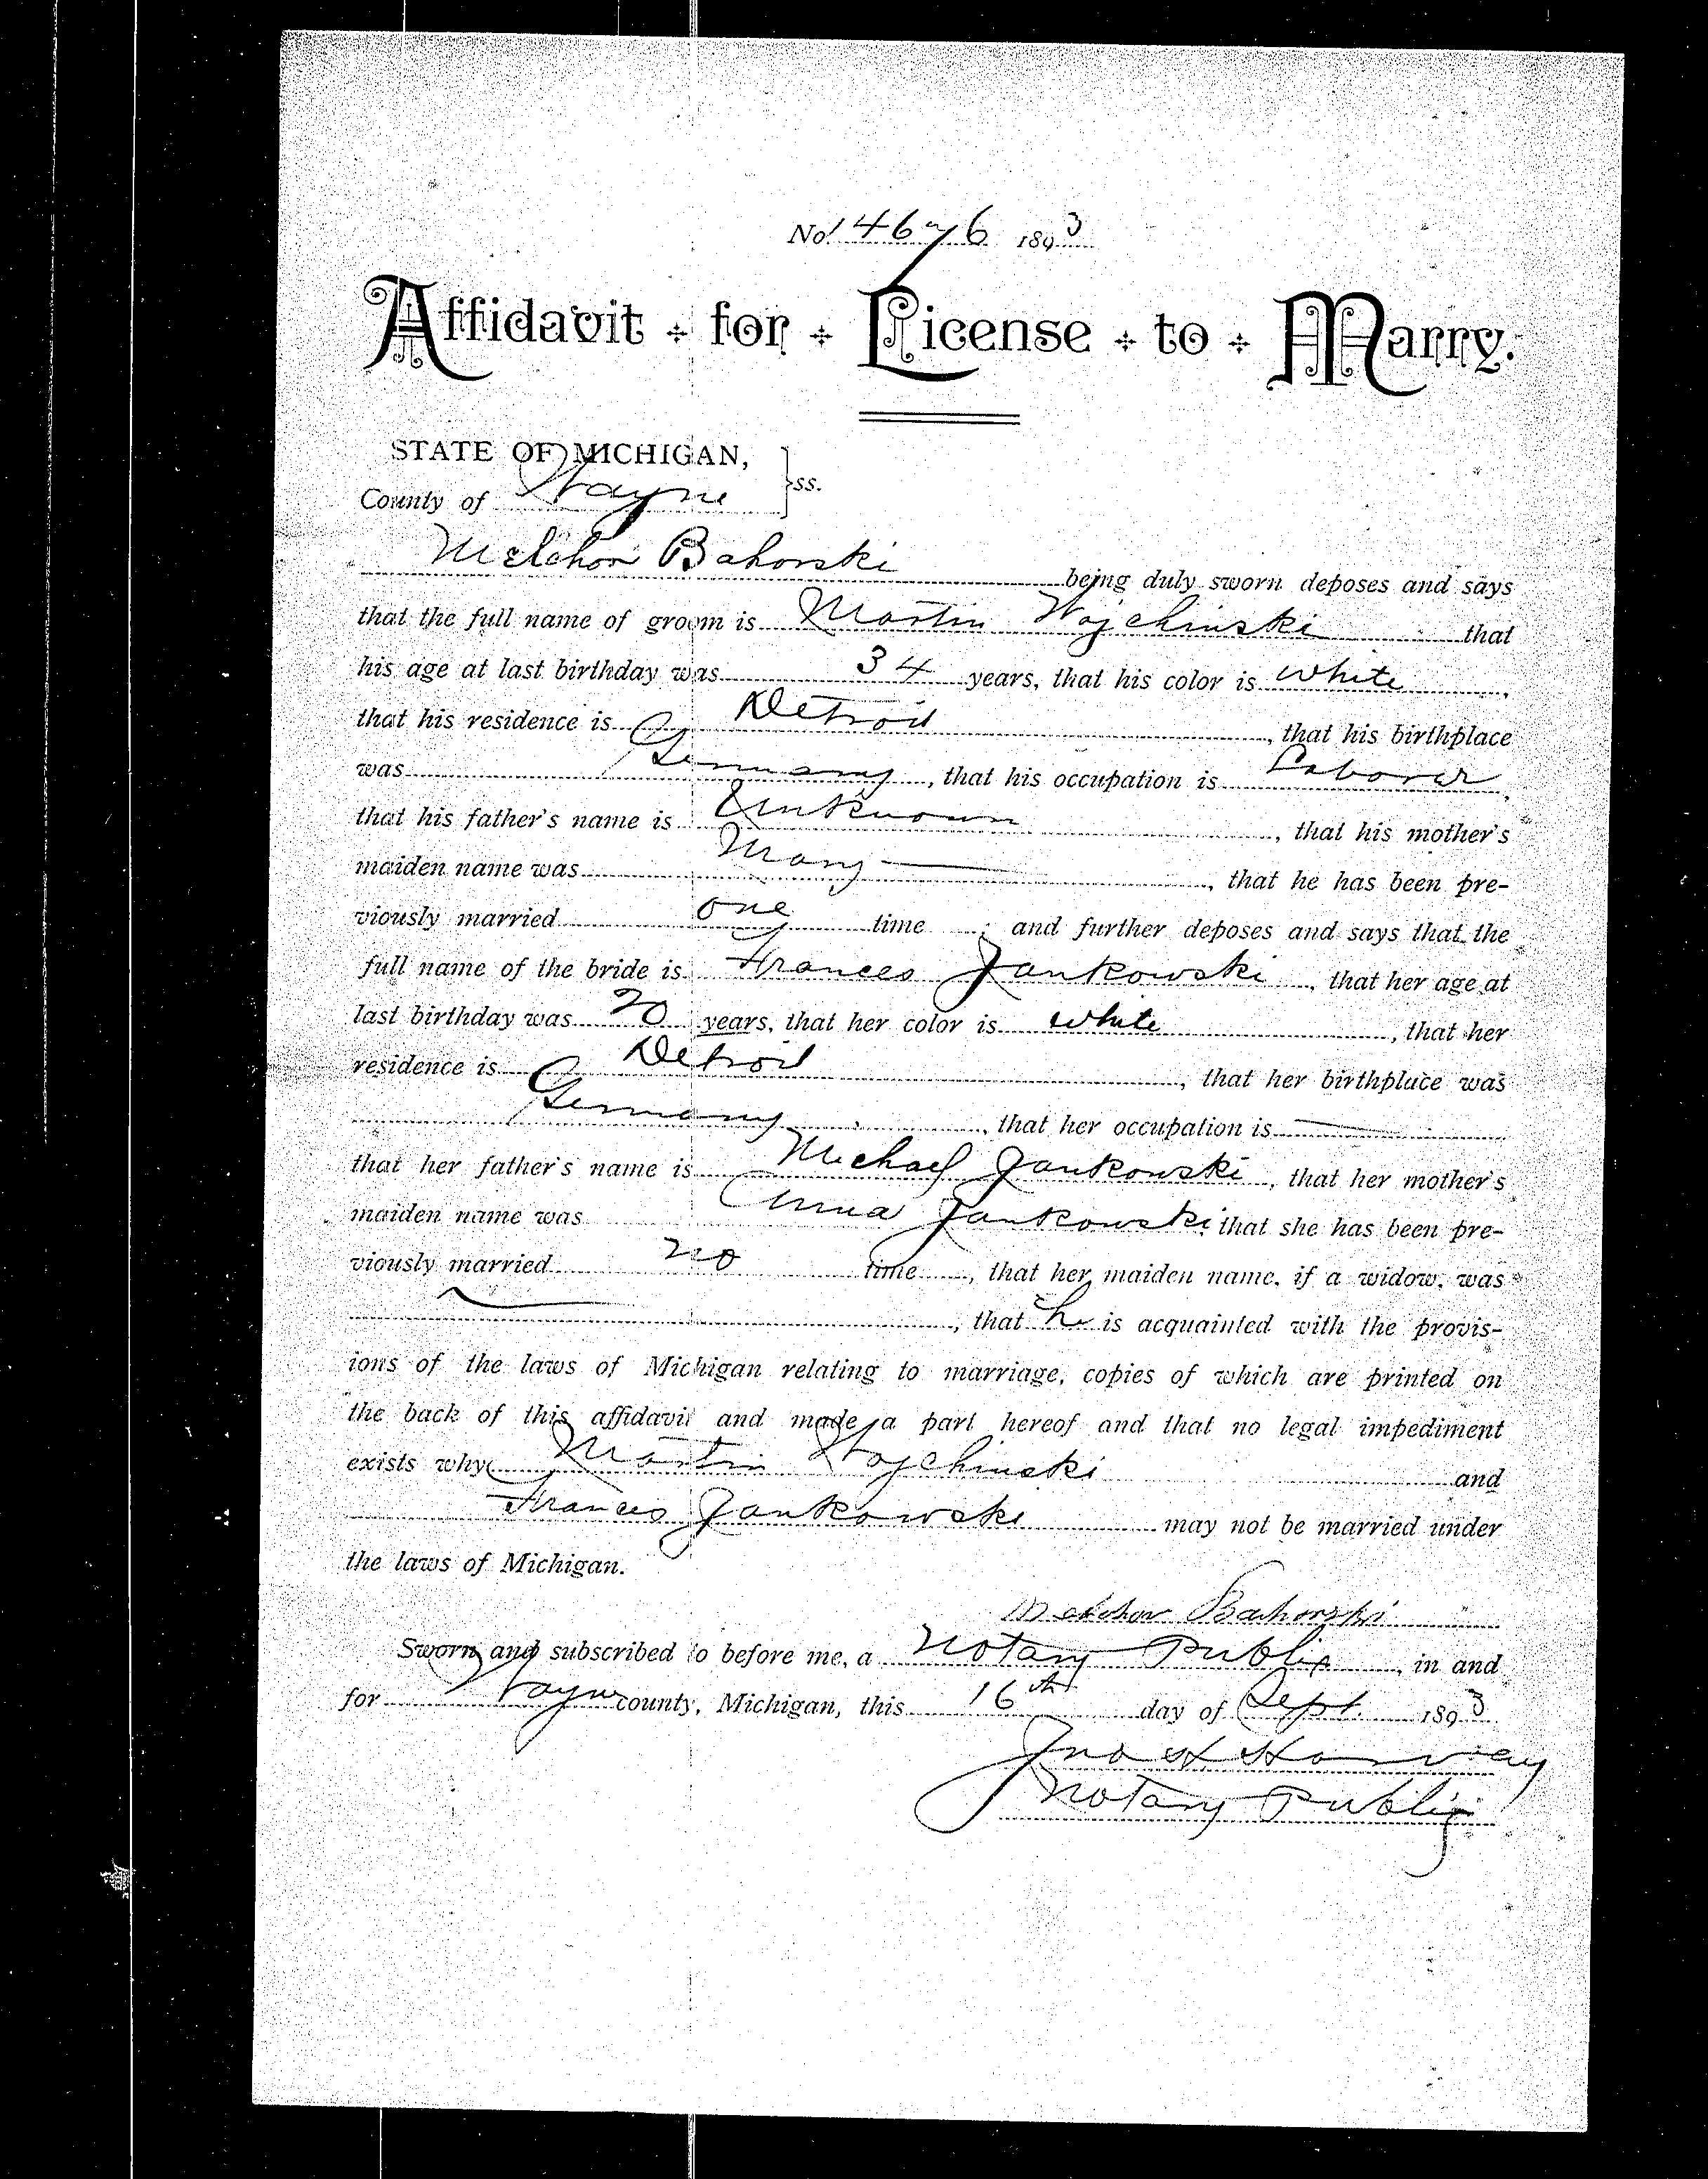 No. 14676 1893
Affidavit for License to Marry.
STATE OF MICHIGAN,
County of Wayne } ss.
Melchor Bahorski being duly sworn deposes and says
that the full name of groom is Martin Wojchinski that
his age at last birthday was 34 years, that his color is white,
that his residence is Detroit, that his birthplace
was Germany, that his occupation is Laborer,
that his father's name is Unknown, that his mother's
maiden name was Mary —, that he has been pre-
viously married one time ; and further deposes and says that the
full name of the bride is Frances Jankowski, that her age at
last birthday was 20 years, that her color is white, that her
residence is Detroit, that her birthplace was
Germany, that her occupation is —
that her father's name is Michael Jankowski, that her mother's
maiden name was Anna Jankowski, that she has been pre-
viously married no time, that her maiden name, if a widow, was
—, that he is acquainted with the provis-
ions of the laws of Michigan relating to marriage, copies of which are printed on
the back of this affidavit and made a part hereof and that no legal impediment
exists why Martin Wojchinski and
Frances Jankowski may not be married under
the laws of Michigan.
Melchor Bahorski
Sworn and subscribed to before me, a Notary Public, in and
for Wayne county, Michigan, this 16th day of Sept. 1893
Jno H Harvey
Notary Public